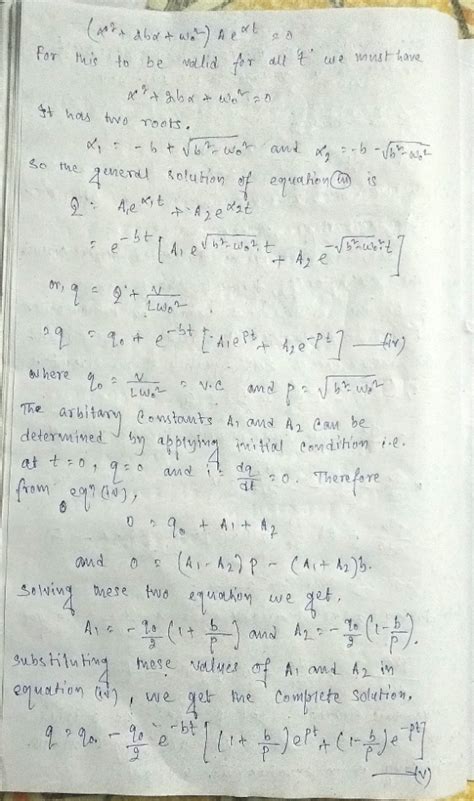 (α² + 2bα + ω₀²) A e^{αt} = 0
For this to be valid for all 't' we must have
α² + 2bα + ω₀² = 0
It has two roots.
α₁ = -b + √(b² - ω₀²) and α₂ = -b - √(b² - ω₀²)
So the general solution of equation (iii) is
Q = A₁e^{α₁t} + A₂e^{α₂t}
= e^{-bt} [A₁ e^{√(b² - ω₀²) t} + A₂ e^{-√(b² - ω₀²) t}]
or, q = Q + V/Lω₀²
⇒ q = q₀ + e^{-bt} [A₁e^{pt} + A₂e^{-pt}] —(iv)
where q₀ = V/Lω₀² = V.C and p = √(b² - ω₀²)
The arbitary constants A₁ and A₂ can be
determined by applying initial condition i.e.
at t = 0, q = 0 and i = dq/dt = 0. Therefore
from eqn (iv),
0 = q₀ + A₁ + A₂
and 0 = (A₁ - A₂) p - (A₁ + A₂) b.
Solving these two equation we get,
A₁ = - q₀/2 (1 + b/p) and A₂ = - q₀/2 (1 - b/p).
substituting these values of A₁ and A₂ in
equation (iv), we get the complete solution.
q = q₀ - q₀/2 e^{-bt} [(1 + b/p) e^{pt} + (1 - b/p) e^{-pt}]
—(v)